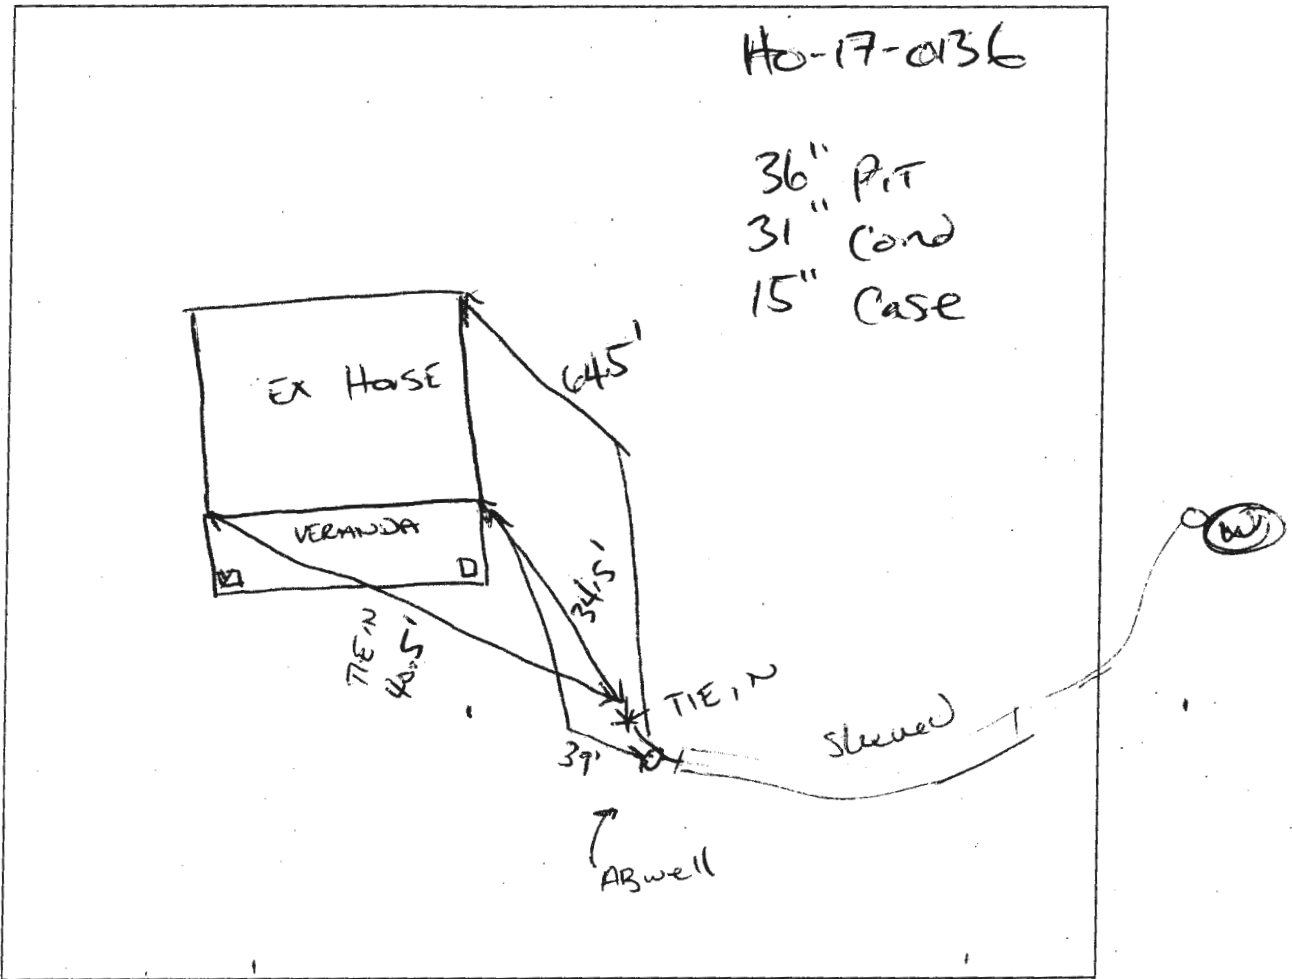 HO-17-0136
36" PIT
31" Cond
15" Case
64.5'
EX HOUSE
VERANDA
34.5'
TIE IN
40.5'
TIE IN
Sleeved
39'
ABwell